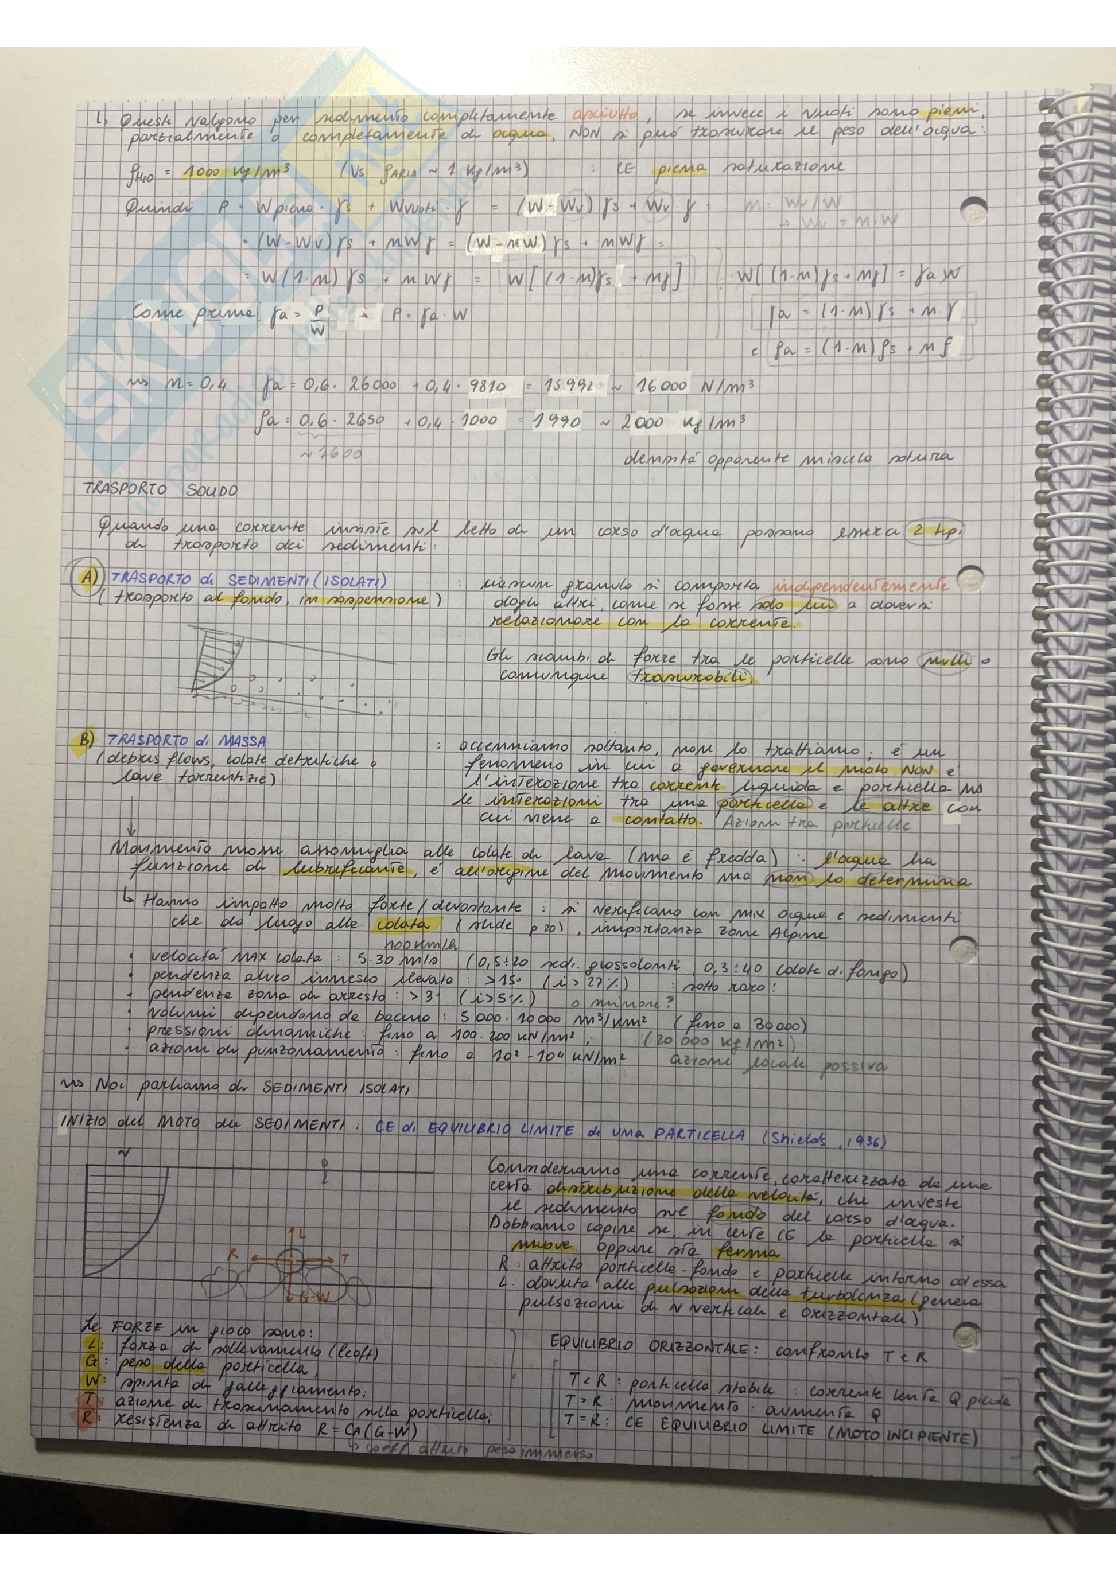 ↳ Questi valgono per sedimento completamente asciutto, se invece i vuoti sono pieni,
parzialmente o completamente di acqua, NON si può trascurare il peso dell'acqua:
ρH2O = 1000 kg/m³ (vs ρARIA ~ 1 kg/m³) : CE piena saturazione
Quindi P = Wpieno · γs + Wvuoti · γ = (W - Wv) γs + Wv γ = n = Wv/W
→ Wv = n·W
= (W-Wv)γs + nWγ = (W-nW)γs + nWγ =
= W(1-n)γs + nWγ = W[(1-n)γs + nγ] W[(1-n)γs + nγ] = γa W
Come prima γa = P/W → P = γa · W γa = (1-n)γs + n γ
e ρa = (1-n)ρs + n ρ
⇝ n = 0,4 γa = 0,6 · 26000 + 0,4 · 9810 = 15992 ~ 16000 N/m³
ρa = 0,6 · 2650 + 0,4 · 1000 = 1990 ~ 2000 kg/m³
~1600
densità apparente miscela satura
TRASPORTO SOLIDO
Quando una corrente insiste sul letto di un corso d'acqua possono esserci 2 tipi
di trasporto dei sedimenti:
A) TRASPORTO di SEDIMENTI (ISOLATI) : ciascun granulo si comporta indipendentemente
(trasporto al fondo, in sospensione) dagli altri, come se fosse solo lui a doversi
relazionare con la corrente.
Gli scambi di forze tra le particelle sono nulli o
comunque trascurabili.
B) TRASPORTO di MASSA : accenniamo soltanto, non lo trattiamo: è un
(debris flows, colate detritiche o fenomeno in cui a governare il moto NON è
lave torrentizie) l'interazione tra corrente liquida e particella ma
le interazioni tra una particella e le altre con
cui viene a contatto. Azioni tra particelle
Movimento massa assomiglia alle colate di lava (ma è fredda) : l'acqua ha
funzione di lubrificante, è all'origine del movimento ma non lo determina
↳ Hanno impatto molto forte/devastante : si verificano con mix acqua e sedimenti
che dà luogo alle colata (slide p 20), importanza zone Alpine
100 km/h
• velocità MAX colata : 5÷30 m/s (0,5÷20 sedi. grossolani, 0,3÷40 colate di fango)
• pendenza alveo innesco elevato : >15° (i > 27%) : sotto raro!
• pendenza zona di arresto : >3° (i>5%) o minore?
• volumi dipendono da bacino : 5000÷10000 m³/km² (fino a 30000)
• pressioni dinamiche : fino a 100÷200 kN/m² ; (20 000 kg/m²)
• azioni di punzonamento : fino a 10³ - 10⁴ kN/m² azione locale
⇝ Noi parliamo di SEDIMENTI ISOLATI
INIZIO del MOTO dei SEDIMENTI : CE di EQUILIBRIO LIMITE di UNA PARTICELLA (Shields, 1936)
Consideriamo una corrente, caratterizzata da una
certa distribuzione della velocità, che investe
il sedimento sul fondo del corso d'acqua.
Dobbiamo capire se, in certe CE la particella si
muove oppure sta ferma
R : attrito particella-fondo e particelle intorno ad essa
L : dovuta alle pulsazioni della turbolenza (genera
pulsazioni di v verticali e orizzontali)
L
R T
G-W
Le FORZE in gioco sono:
L : forza di sollevamento (lift)
G : peso della particella
W : spinta di galleggiamento;
T : azione di trascinamento sulla particella;
R : resistenza di attrito R = CA(G-W)
↳ coeff attrito peso immerso
EQUILIBRIO ORIZZONTALE : confronto T e R
T < R : particella stabile : corrente lenta Q piccola
T > R : movimento : aumenta Q
T = R : CE EQUILIBRIO LIMITE (MOTO INCIPIENTE)